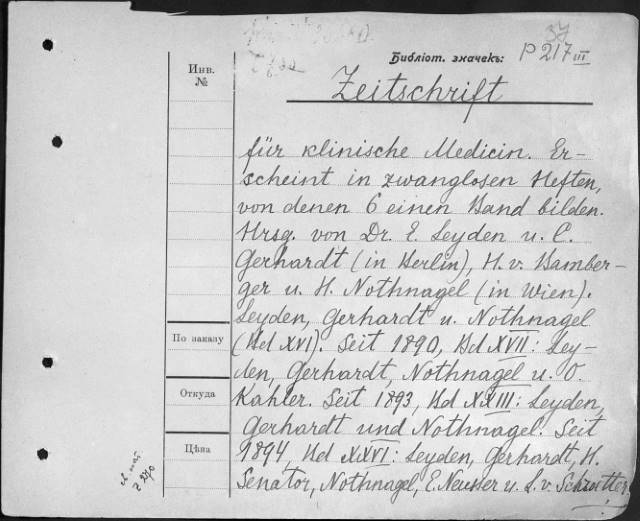 37
Библіот. значекъ: P 217 III
Инв.
№
Zeitschrift
für klinische Medicin. Er-
scheint in zwanglosen Heften,
von denen 6 einen Band bilden.
Hrsg. von Dr. E. Leyden u. C.
Gerhardt (in Berlin), H. v. Bamber-
ger u. H. Nothnagel (in Wien).
Leyden, Gerhardt u. Nothnagel
(Bd XVI). Seit 1890, Bd XVII: Ley-
den, Gerhardt, Nothnagel u. O.
Kahler. Seit 1893, Bd XXIII: Leyden,
Gerhardt und Nothnagel. Seit
1894, Bd XXVI: Leyden, Gerhardt, H.
Senator, Nothnagel, E. Neusser u. L. v. Schrötter
По заказу
Откуда
Цѣна